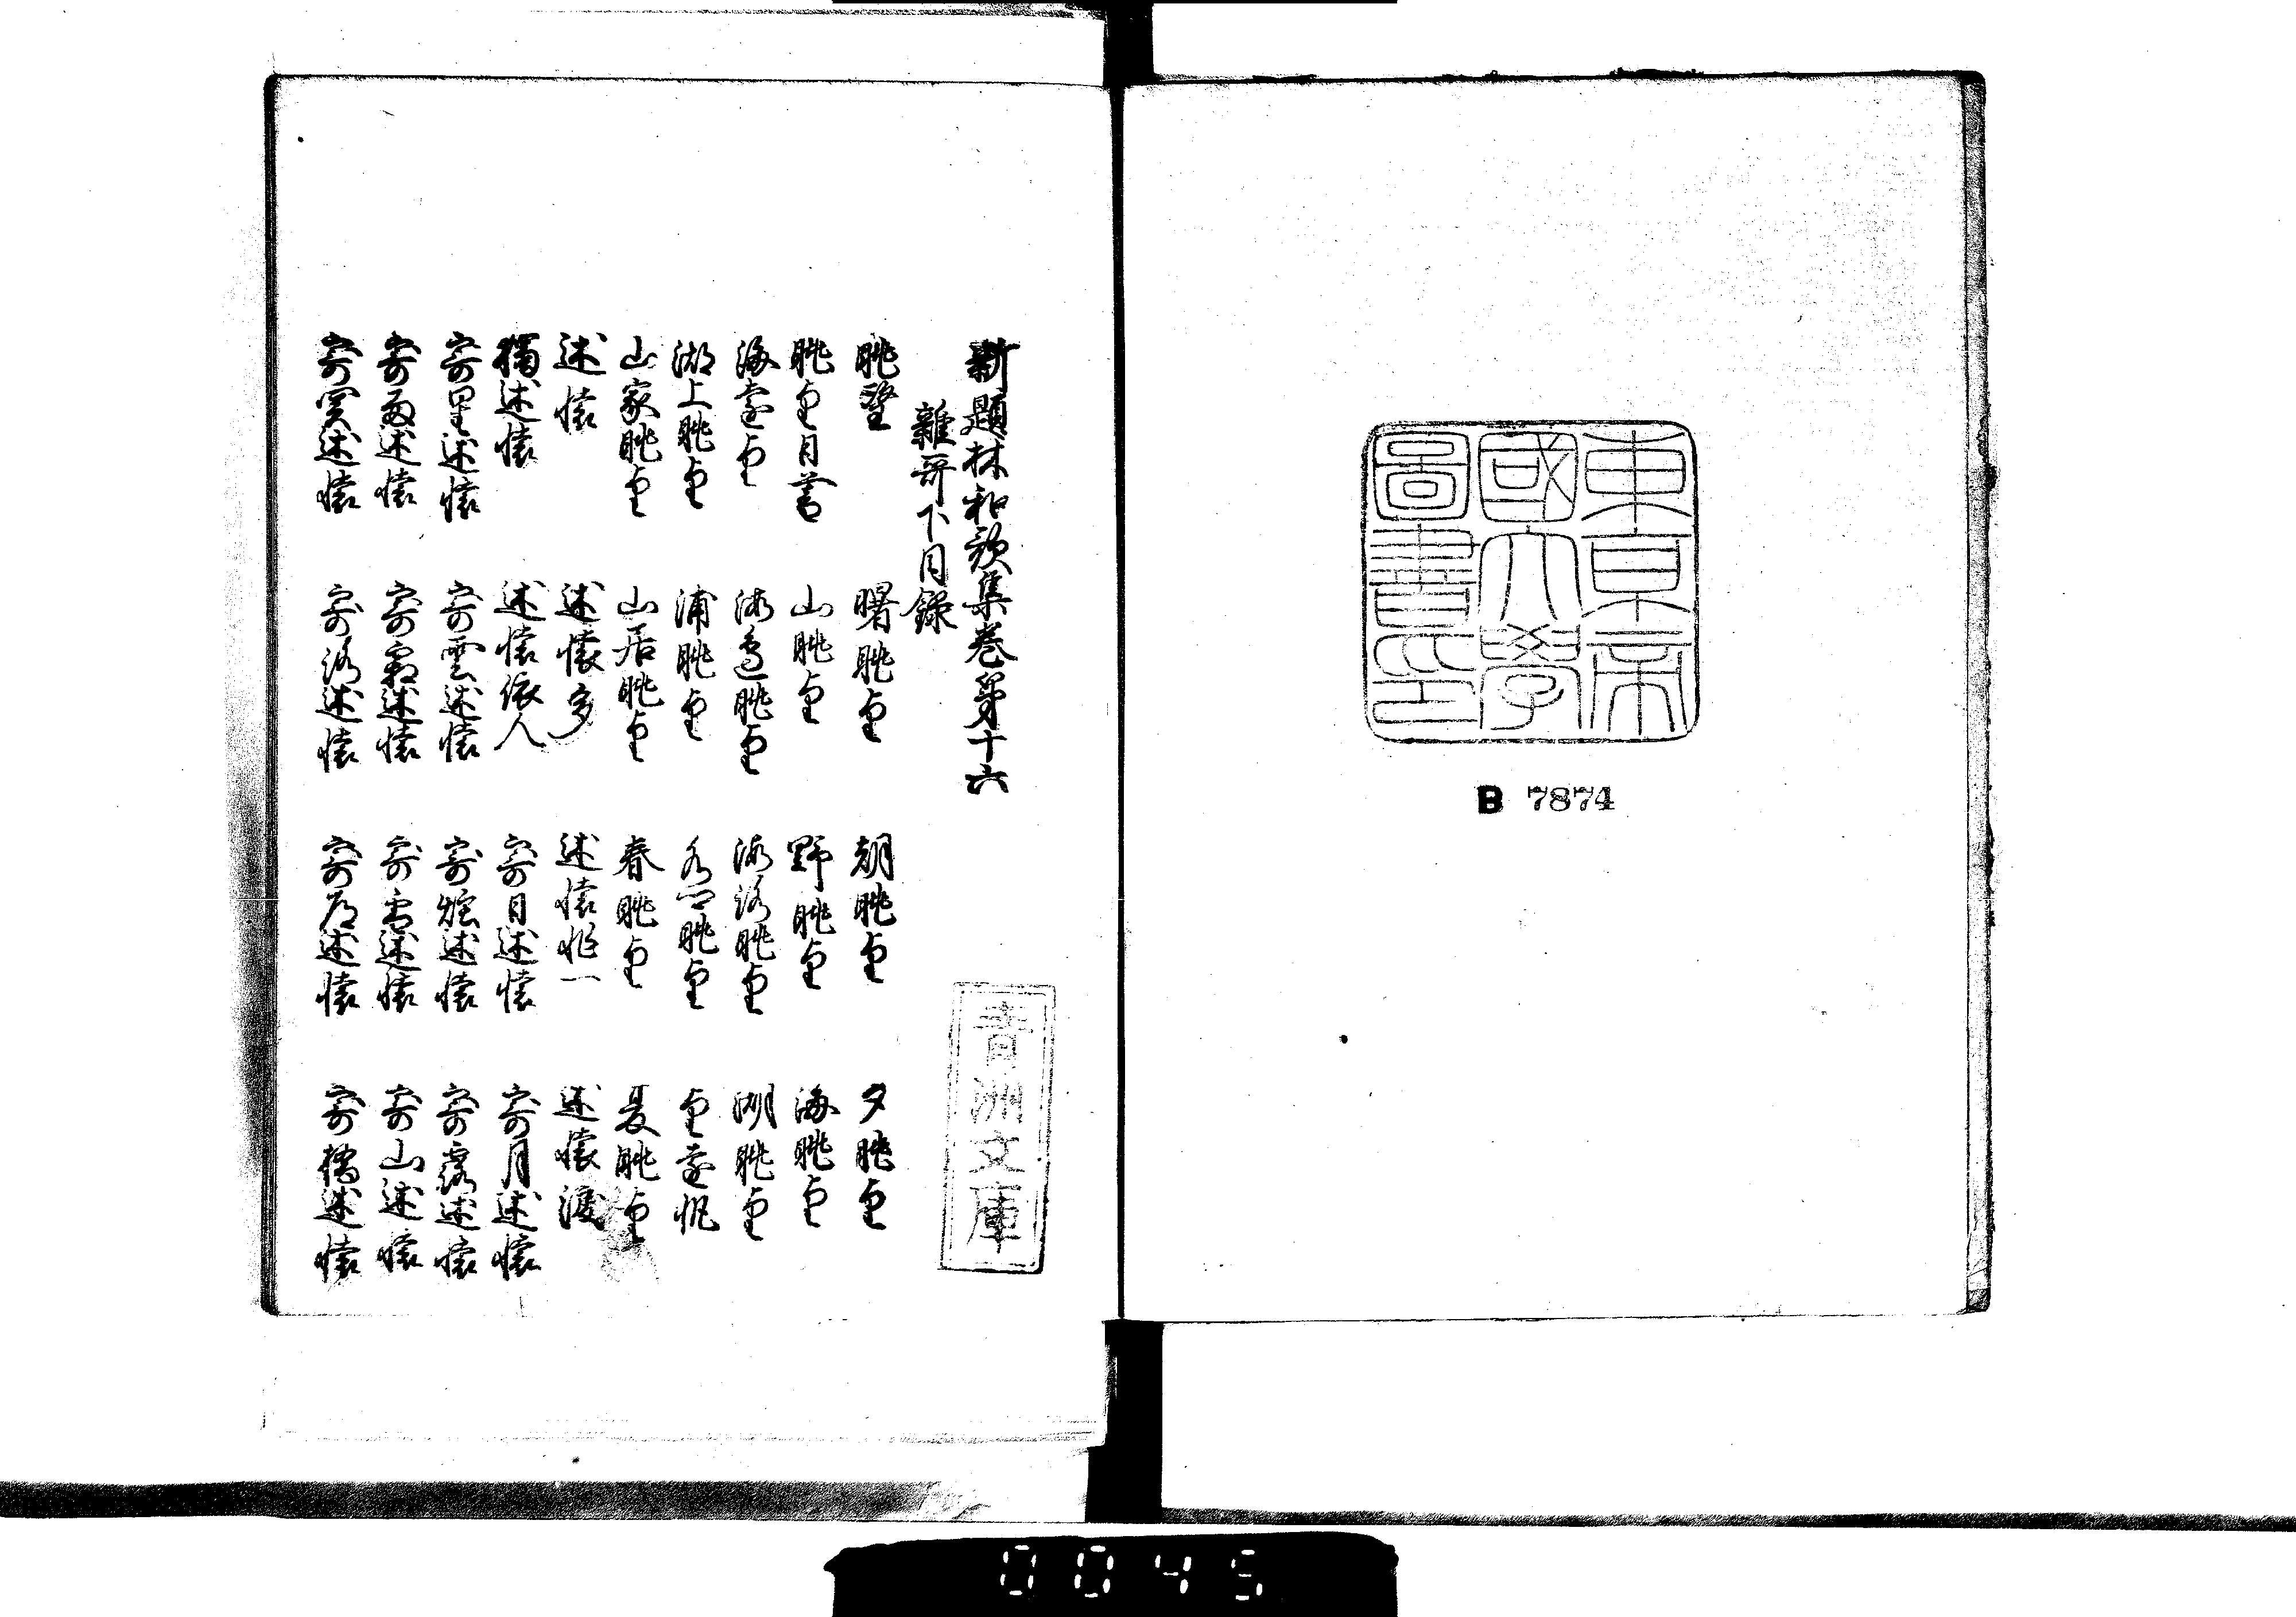 東京帝
國大學
圖書印
B 7874
新題林和謌集卷第十六
雜哥下目録
眺望 曙眺望 朝眺望 夕眺望
眺望日暮 山眺望 野眺望 海眺望
海遠望 海邊眺望 海路眺望 湖眺望
湖上眺望 浦眺望 水郷眺望 望遠帆
山家眺望 山居眺望 春眺望 夏眺望
述懐 述懐多 述懐非一 述懐涙
獨述懐 述懐依人 寄日述懐 寄月述懐
寄星述懐 寄雲述懐 寄煙述懐 寄露述懐
寄雨述懐 寄霜述懐 寄雪述懐 寄山述懐
寄関述懐 寄路述懐 寄原述懐 寄橋述懐
青洲文庫
0045